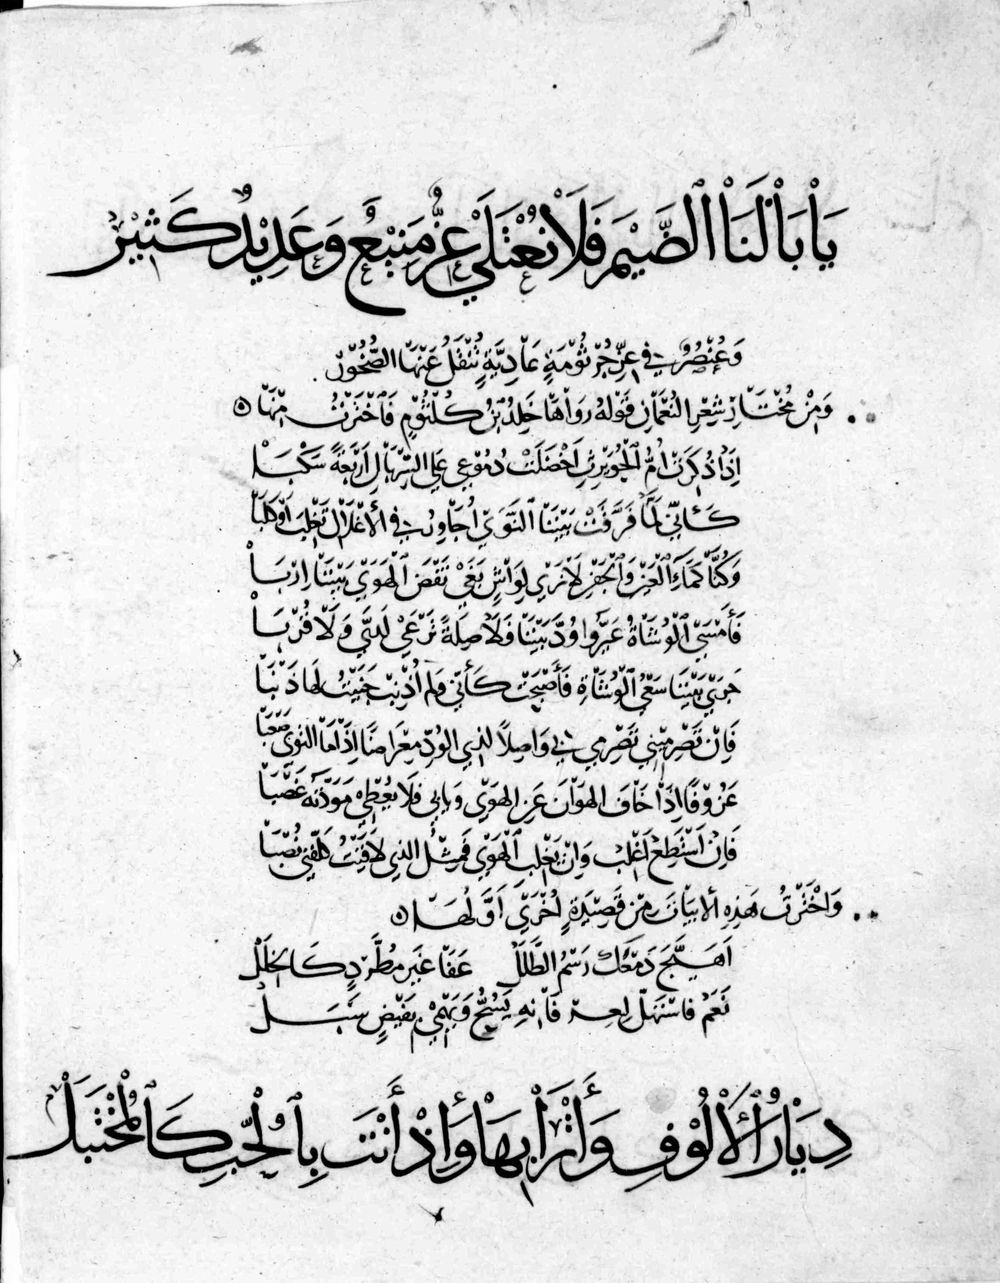 يَأْبَا لَنَا الضَّيْمَ فَلَا نُعْتَلَي عِزٌّ مَنِيْعٌ وَعَدِيْدٌ كَثِيْرْ
وَعُنْصُرٌ في عِزِّ جُرْثُوْمَةٍ عَادِيَّةٍ تُنْقَلُ عَنْهَا الصُّخُوْرْ
وَمِنْ مُخْتَارِ شِعْرِ النُعْمَانِ قَوْلهُ رَوَاهَا خَلِدُ بْنُ كُلْثُوْمٍ فَاخْتَرْتُ مِنْهَا
اِذَا ذُكِرَتْ اُمُّ الْحُوَيْرِثِ اَخْضَلَتْ دُمُوْعِي عَلَى السِّرْبَالِ اَرْبَعَةً سَكْبَا
كَأَنِّي لَمَّا فَرَّقَتْ بَيْنَنَا النَّوَى اُجَاوِرُ في الْأَغْلَالِ تَغْلِبَ اَوْ كَلْبَا
وَكُنَّا كَمَاءِ الْعَيْنِ وَالْجَفْنِ لَا نَرَي لِوَاشٍ بَغَى نَقْضَ الْهَوَي بَيْنَنَا اِرْبَا
فَأَمْسَي الْوُشَاةُ غَيَّرُوا وُدَّ بَيْنِنَا فَلَا صِلَةً تَرْعَى لَدَيَّ وَلَا قُرْبَا
جَرَى بَيْنَنَا سَعْيُ الْوُشَاةِ فَأَصْبَحَتْ كَأَنِّي وَلَمْ اُذْنِبْ جَنَيْتُ لَهَا ذَنْبَا
فَإِنْ تَصْرِمِيْنِي تَصْرِمِي بِي وَاصِلًا لِذِي الوُدِّ مِعْرَاضًا اِذَا مَا النَوَى صَعْبَا
عَزُوْفًا اِذَا خَافَ الهَوَانَ عَنِ الهَوَى وَيَابِي فَلَا يُعْطِي مَوَدَّتَهُ غَصْبَا
فَإِنْ اَسْتَطِعْ اَغْلِبْ وَاِنْ يَغْلِبِ الْهَوَى فَمِثْلُ الذِي لَاقَيْتُ
وَاخْتَرْتُ هَذِهِ الابيَاتَ مِنْ قَصِيْدَةٍ اُخْرَى اَوَّلُهَا
اَهَيَّجَ دَمْعَكَ رَسْمُ الطَّلَلْ عَفَا غَيْرَ مُطَّرِدٍ كَالخِلَلْ
نَعَمْ فَاسْتَهَلَّ لِعِرْفَانِهِ يَسُحُّ وَيَهْمِي بِفَيْضٍ سَبَلْ
دِيَارُ الْأَلُوْفِ وَأَتْرَابِهَا وَإِذْ أَنْتَ بِالْحُبِّ كَالْمُخْتَبَلْ